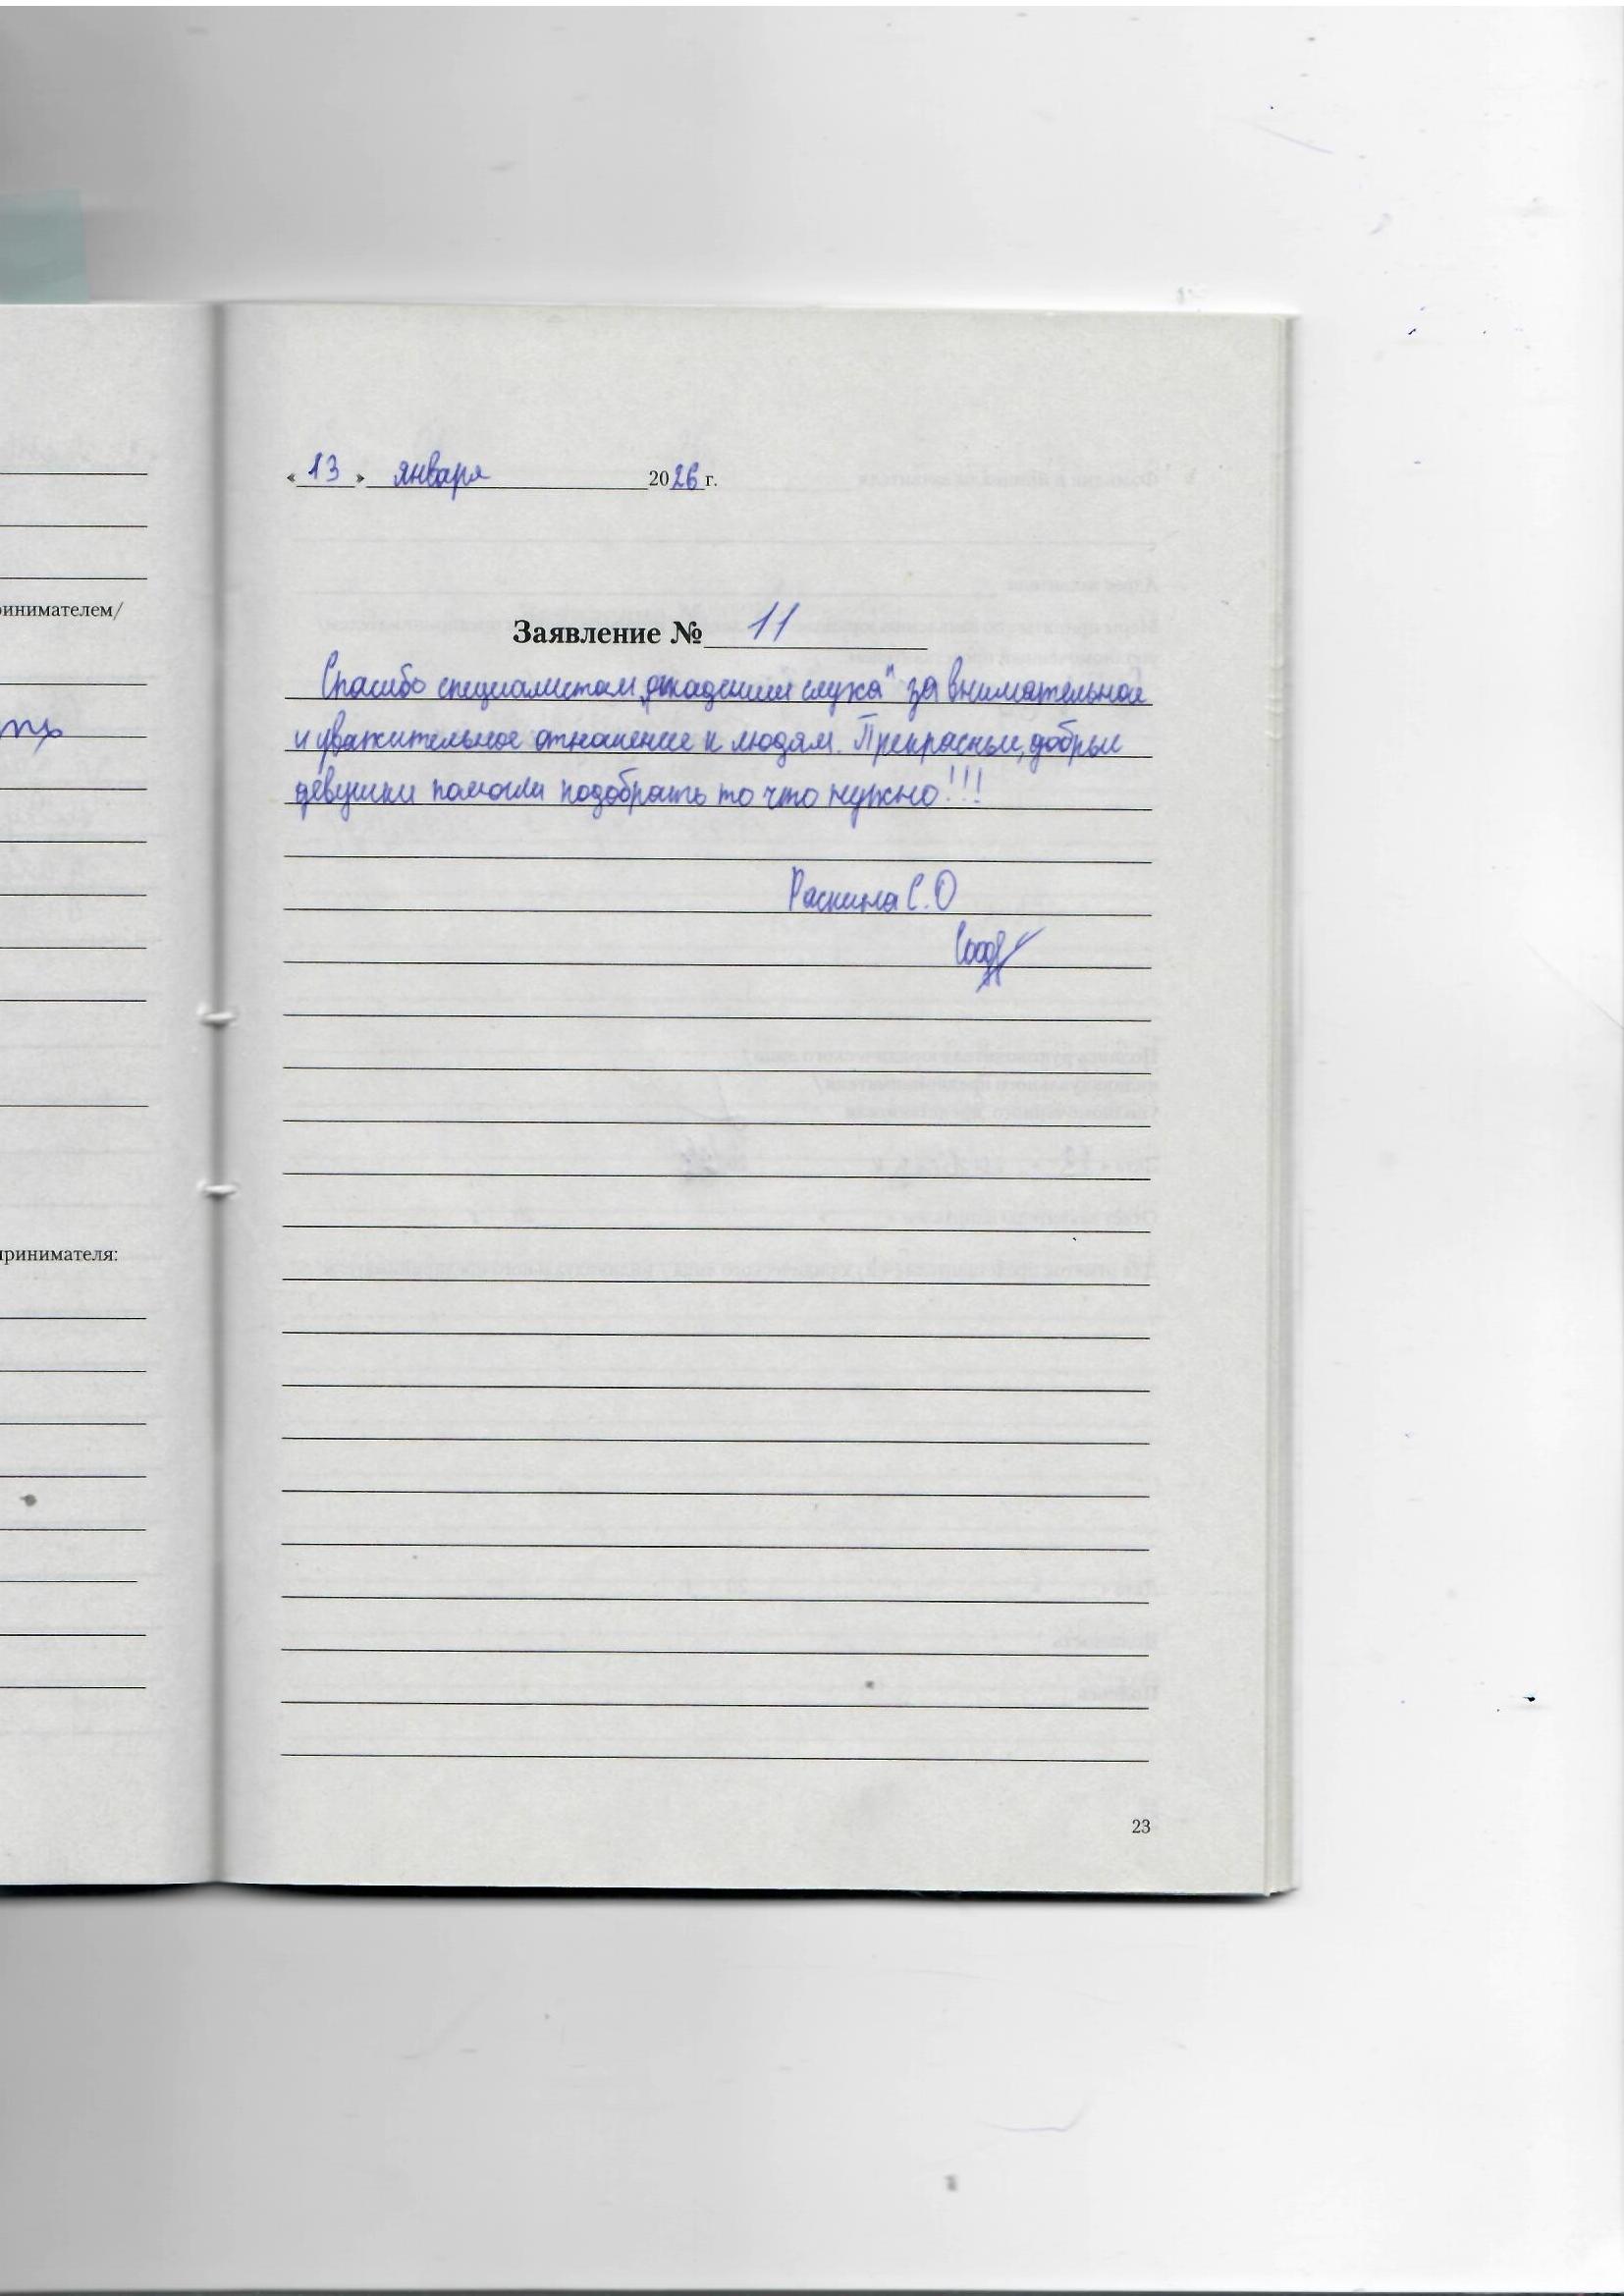 «13» января 2026 г.
ринимателем/
Заявление № 11
Спасибо специалистам „Академии слуха" за внимательное
и уважительное отношение к людям. Прекрасные, добрые
девушки помогли подобрать то что нужно!!!
Раскина С.О
принимателя:
23